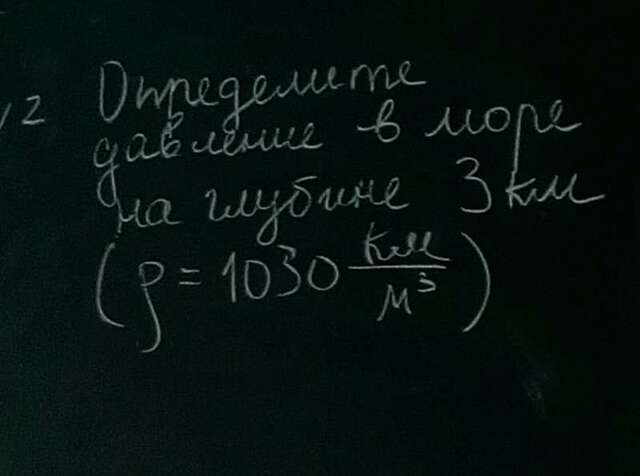 √2 Определите
давление в море
на глубине 3 км
(ρ = 1030 км/м³)